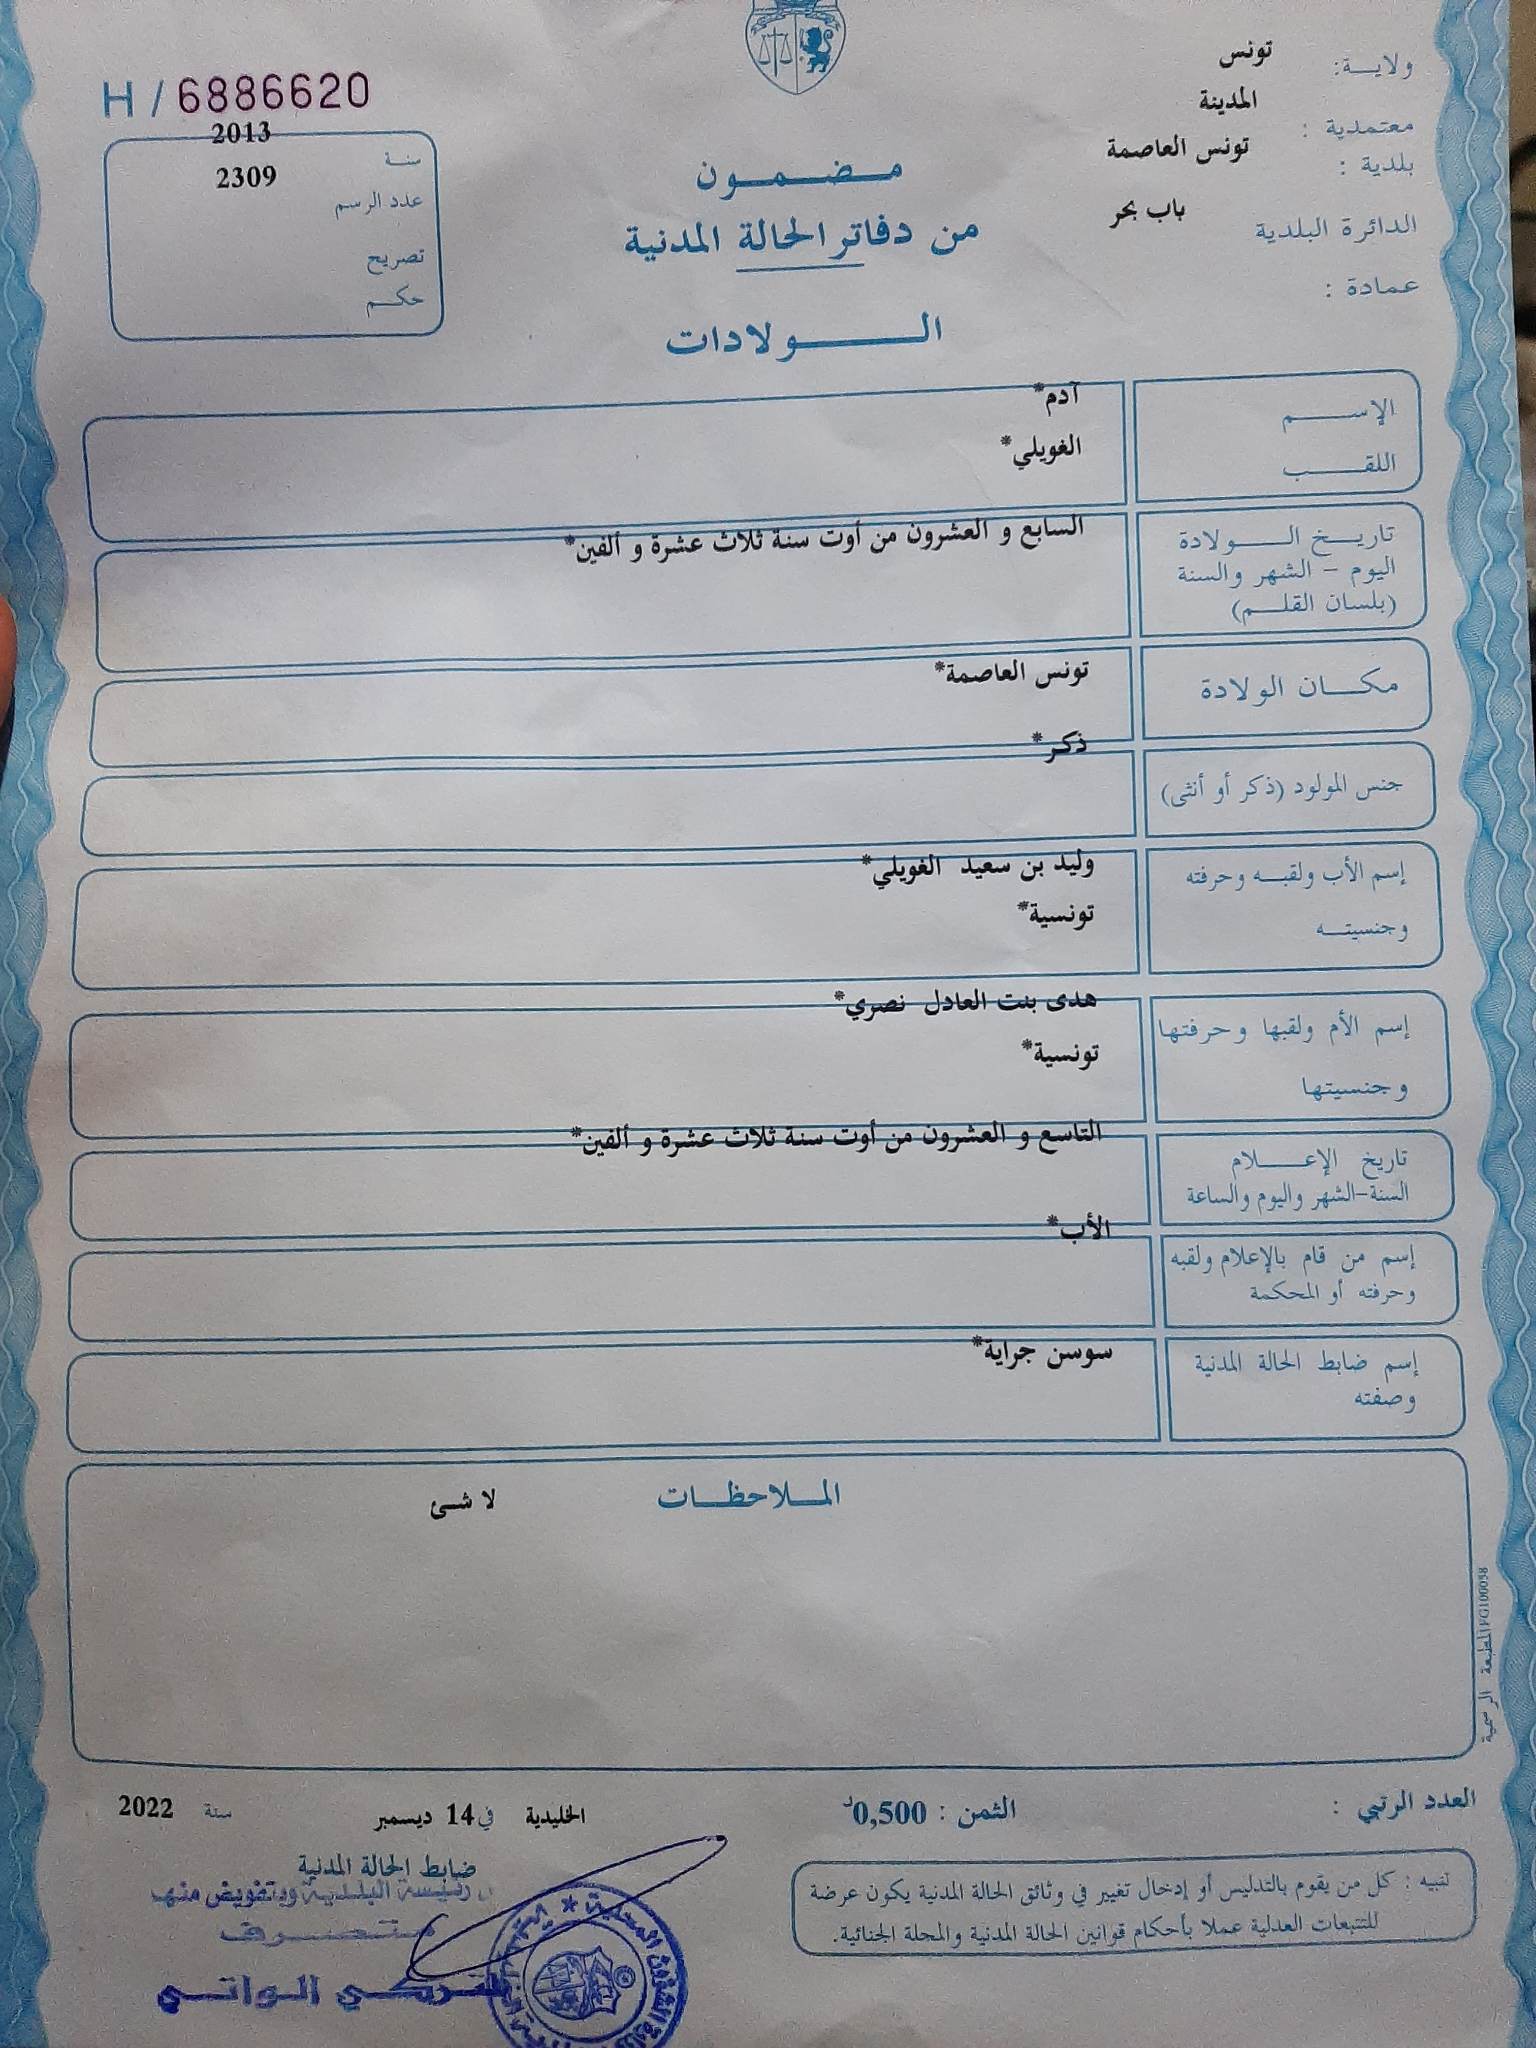 ولاية: تونس
معتمدية : المدينة
بلدية : تونس العاصمة
الدائرة البلدية باب بحر
عمادة :
H / 6886620
سنة 2013
عدد الرسم 2309
تصريح
حكم
مضمون
من دفاتر الحالة المدنية
الولادات
الإسم آدم*
اللقب الغويلي*
تاريخ الولادة السابع و العشرون من أوت سنة ثلاث عشرة و ألفين*
اليوم - الشهر والسنة
(بلسان القلم)
مكان الولادة تونس العاصمة*
جنس المولود (ذكر أو أنثى) ذكر*
إسم الأب ولقبه وحرفته وليد بن سعيد الغويلي*
وجنسيته تونسية*
إسم الأم ولقبها وحرفتها هدى بنت العادل نصري*
وجنسيتها تونسية*
تاريخ الإعلام التاسع و العشرون من أوت سنة ثلاث عشرة و ألفين*
السنة-الشهر واليوم والساعة
إسم من قام بالإعلام ولقبه الأب*
وحرفته أو المحكمة
إسم ضابط الحالة المدنية سوسن جراية*
وصفته
الملاحظات لا شئ
المطبعة الرسمية FG100058
العدد الرتبي :
الثمن : 0,500د
الخليدية في 14 ديسمبر سنة 2022
ضابط الحالة المدنية
رئيسة البلدية وبتفويض منها
متصرف
الواتي
تنبيه : كل من يقوم بالتدليس أو إدخال تغيير في وثائق الحالة المدنية يكون عرضة
للتتبعات العدلية عملا بأحكام قوانين الحالة المدنية والمجلة الجنائية.